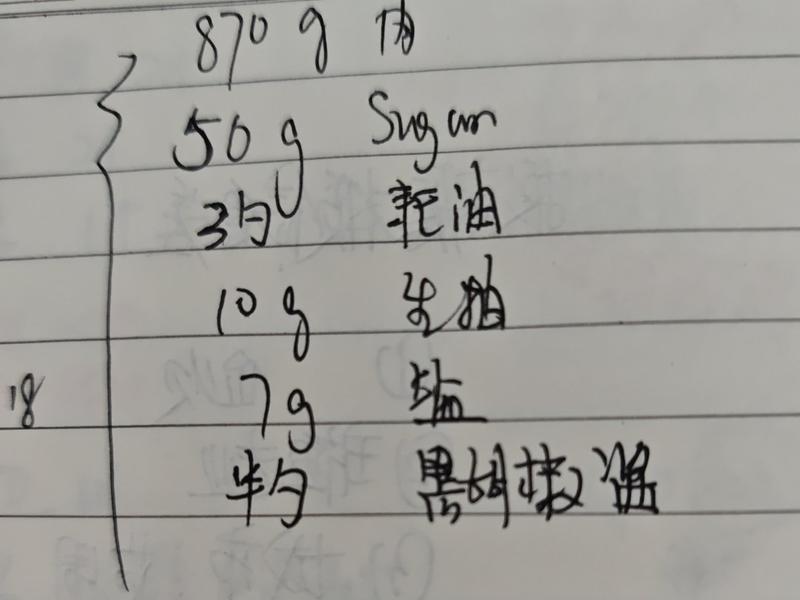 870g 肉
50g Sugar
3勺 耗油
10g 生抽
18 7g 盐
半勺 黑胡椒酱